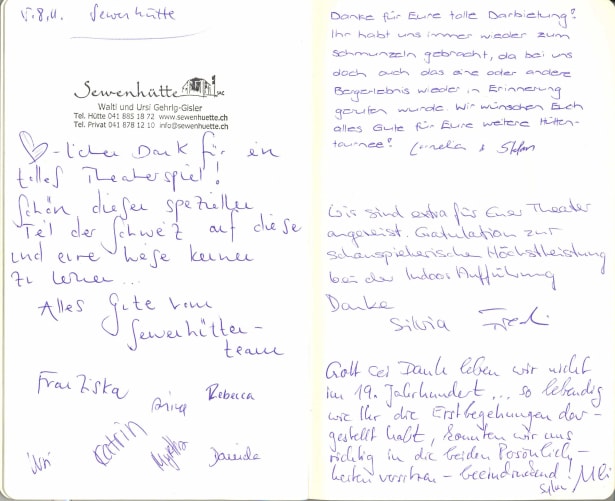 5.8.11. Sewenhütte
Sewenhütte SAC
Walti und Ursi Gehrig-Gisler
Tel. Hütte 041 885 18 72 www.sewenhuette.ch
Tel. Privat 041 878 12 10 info@sewenhuette.ch
♡-lichen Dank für ein
tolles Theaterspiel!
Schön diesen speziellen
Teil der Schweiz auf diese
und eure Weise kennen
zu lernen...
Alles Gute vom
Sewenhütten-
team
Franziska
Rebecca
Katrin
Daniela
Danke für Eure tolle Darbietung!
Ihr habt uns immer wieder zum
schmunzeln gebracht, da bei uns
doch auch das eine oder andere
Bergerlebnis wieder in Erinnerung
gerufen wurde. Wir wünschen Euch
alles Gute für Eure weitere Hütten-
tournee! Cornelia & Stefan
Wir sind extra für Euer Theater
angereist. Gratulation zur
schauspielerischen Höchstleistung
bei der Indoor Aufführung
Danke
Silvia Fredi
Gott sei Dank leben wir nicht
im 19. Jahrhundert... so lebendig
wie Ihr die Erstbegehungen dar-
gestellt habt, konnten wir uns
richtig in die beiden Persönlich-
keiten versetzen - beeindruckend!